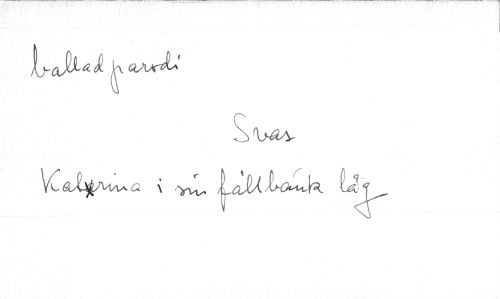 ballad parodi
Svas
Katrina i sin fållbänk låg